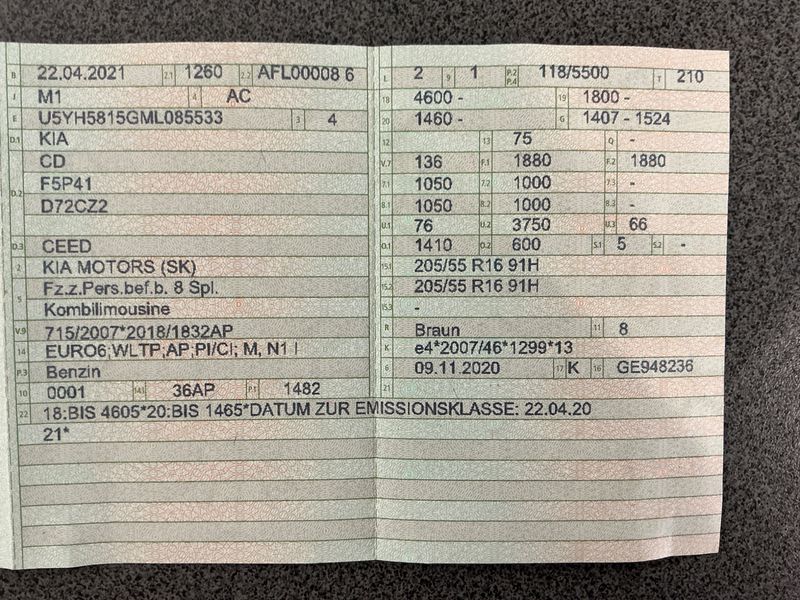 B 22.04.2021 2.1 1260 2.2 AFL00008 6
J M1 4 AC
E U5YH5815GML085533 3 4
D.1 KIA
CD
D.2 F5P41
D72CZ2
D.3 CEED
2 KIA MOTORS (SK)
5 Fz.z.Pers.bef.b. 8 Spl.
Kombilimousine
V.9 715/2007*2018/1832AP
14 EURO6;WLTP;AP;PI/CI; M, N1 I
P.3 Benzin
10 0001 14.1 36AP P.1 1482
L 2 9 1 P.2 P.4 118/5500 T 210
18 4600 - 19 1800 -
20 1460 - G 1407 - 1524
12 13 75 Q -
V.7 136 F.1 1880 F.2 1880
7.1 1050 7.2 1000 7.3 -
8.1 1050 8.2 1000 8.3 -
U.1 76 U.2 3750 U.3 66
O.1 1410 O.2 600 S.1 5 S.2 -
15.1 205/55 R16 91H
15.2 205/55 R16 91H
15.3 -
R Braun 11 8
K e4*2007/46*1299*13
6 09.11.2020 17 K 16 GE948236
21
22 18:BIS 4605*20:BIS 1465*DATUM ZUR EMISSIONSKLASSE: 22.04.20
21*